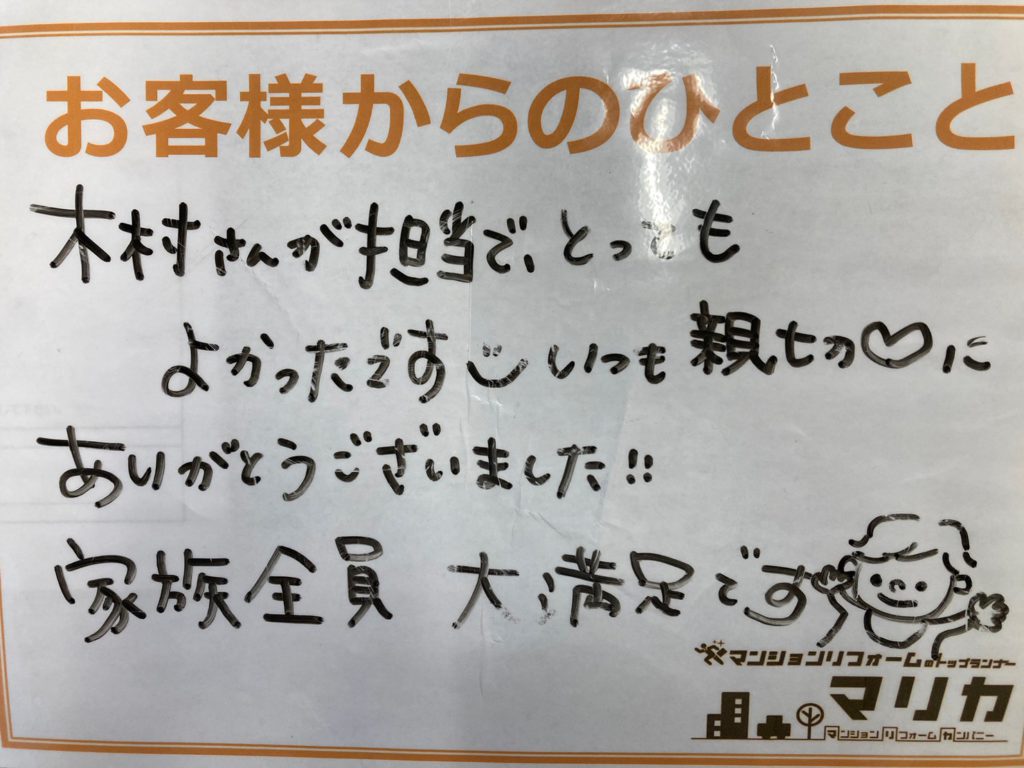 お客様からのひとこと
木村さんが担当で、とっても
よかったです いつも親切♡に
ありがとうございました!!
家族全員 大満足です
マンションリフォームのトップランナー
マリカ
マンションリフォームカンパニー